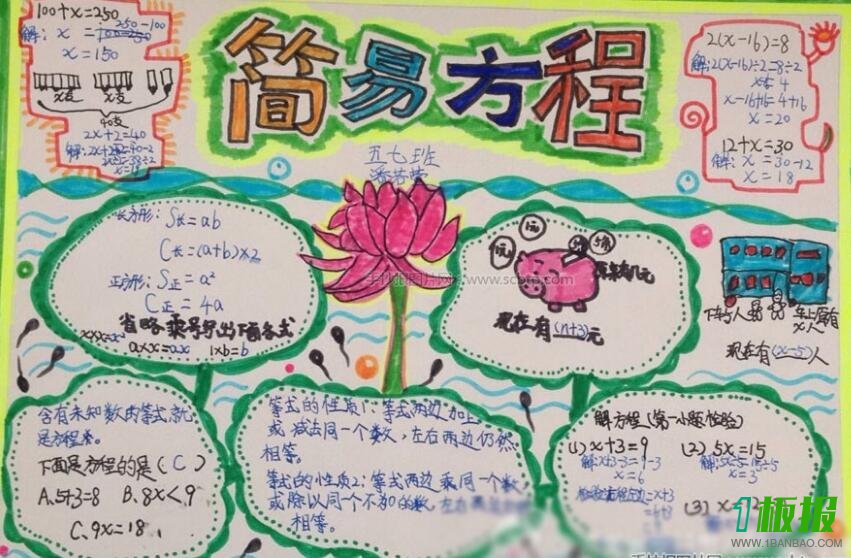 简易方程
五七班
100+x=250
解: x=
250-100
x=150
x支
x支
40支
2x+2=40
解:
2(x-16)=8
解:2(x-16)÷2=8÷2
x-16+16=4+16
x=20
12+x=30
解: x=30-12
x=18
长方形: S长=ab
C长=(a+b)×2
正方形: S正=a²
C正=4a
省略乘号写出下面各式
a×x=ax 1×b=b
1元
现在有(n+3)元
下车5人
车上原有
x人
现在有(x-5)人
含有未知数的等式就
是方程
下面是方程的是(C)
A.5+3=8 B.8x<9
C.9x=18
等式的性质1:等式两边加上
或减去同一个数,左右两边仍然
相等。
等式的性质2:等式两边乘同一个数
或除以同一个不为0的数,左右
相等。
解方程(第一小题检验)
(1)x+3=9
解:x+3-3=9-3
x=6
=x+3
(2) 5x=15
解:5x÷5=15÷5
x=3
(3)
1板报
WWW.1BANBAO.COM